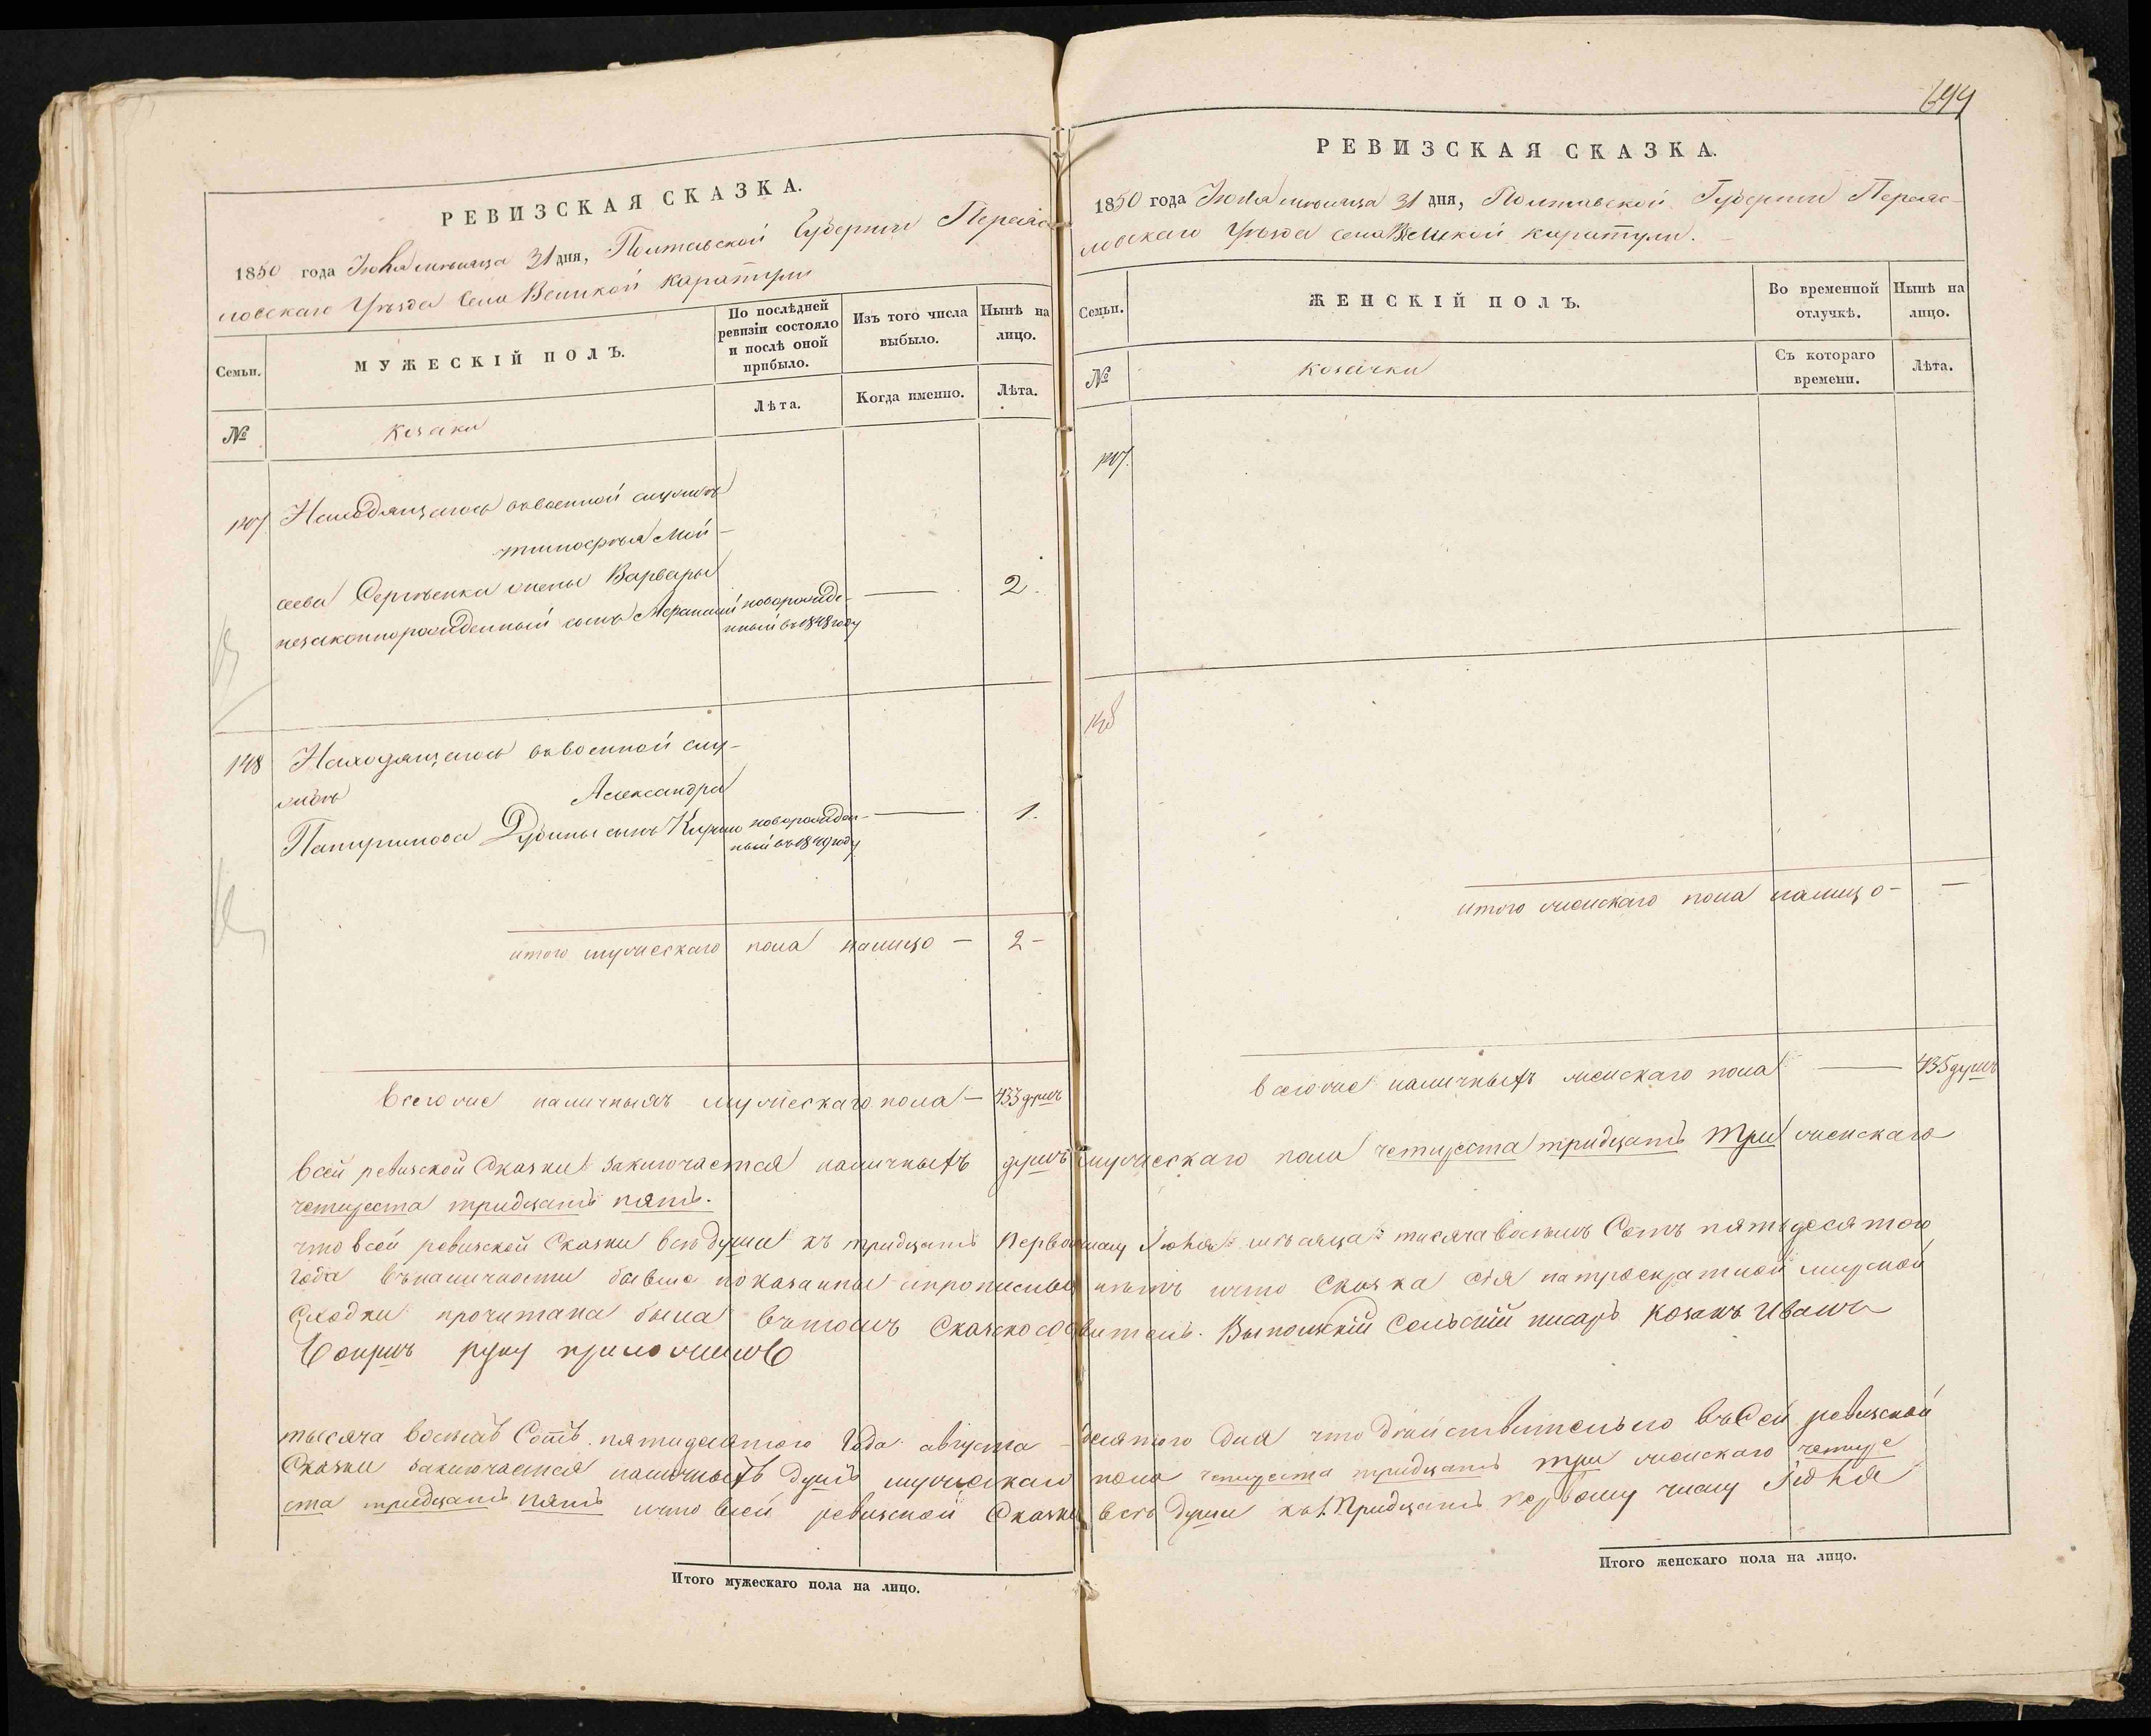 РЕВИЗСКАЯ СКАЗКА.
1850 года Июля мѣсяца 31 дня, Полтавской Губернии Переяс
ловскаго Уѣзда села Великой Каратули
Семьи.
МУЖЕСКІЙ ПОЛЪ.
По послѣдней ревизіи состояло и послѣ оной прибыло.
Изъ того числа выбыло.
Нынѣ на лицо.
№
козаки
Лѣта.
Когда именно.
Лѣта.
147
Находящагося въ военной службѣ
Тимофѣя Мой-
сеева Сергѣенка жены Варвары
незаконнорожденный сынъ Афанасий
новорожде-
нный въ 1848 году
2.
148
Находящагося въ военной слу-
жбѣ Александра
Патрикиева Дубины сынъ
новорожден-
ный въ 1849 году
1.
итого мужескаго пола налицо — 2 —
Всегоже наличныхъ мужескаго пола — 433 душъ
699
РЕВИЗСКАЯ СКАЗКА.
1850 года Июля мѣсяца 31 дня, Полтавской Губернии Переяс-
ловскаго Уѣзда села Великой Каратули.
Семьи.
ЖЕНСКІЙ ПОЛЪ.
Во временной отлучкѣ.
Нынѣ на лицо.
№
козачки
Съ котораго времени.
Лѣта.
147.
148
итого женскаго пола налицо — —
всегоже наличныхъ женскаго пола — 435 душъ
Всей ревизской Сказки заключается наличныхъ душъ мужескаго пола четыреста тридцать три женскаго
четыреста тридцать пять.
что всей ревизской Сказки всѣ души къ тридцать первому Июля мѣсяца тисяча восемь Сотъ пятьдесятого
года въ наличности бывше показаны и прописныхъ нѣтъ и что Сказка сія на троекратной мирской
сходки прочитана была въ томъ Сказкосоставитель. Сельский писарь козакъ Иванъ
руку приложилъ
тысяча восемъ Сотъ пятидесятого Года августа десятого Дня что Действительно въ Сей ревизской
Сказки заключается наличныхъ Душъ мужескаго пола четыреста тридцать три женскаго четыре
ста тридцать пять и что всей ревизской Сказки всѣ Души къ тридцать первому числу Июля
Итого мужескаго пола на лицо.
Итого женскаго пола на лицо.